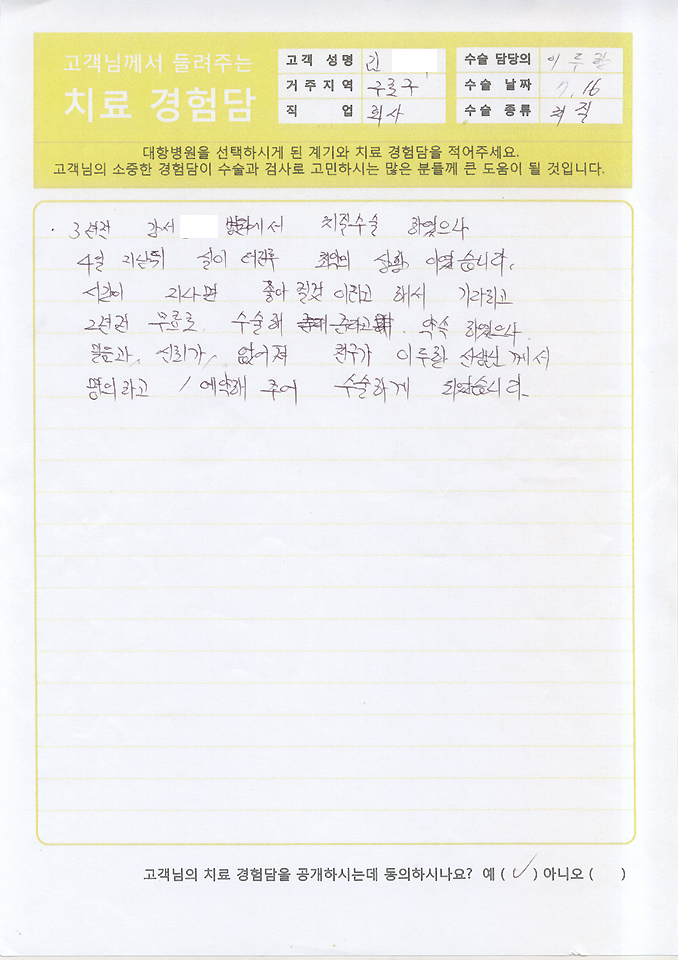 고객님께서 들려주는
치료 경험담
고객 성명 김
거주지역 구로구
직 업 회사
수술 담당의 이두한
수술 날짜 7. 16
수술 종류 치질
대항병원을 선택하시게 된 계기와 치료 경험담을 적어주세요.
고객님의 소중한 경험담이 수술과 검사로 고민하시는 많은 분들께 큰 도움이 될 것입니다.
. 3년전 강서 병원에서 치직수술 하였으나
4월 지난뒤 살이 최악의 상황 이였습니다.
시간이 지나면 좋아 질것 이라고 해서 기다리고
2년전 무료로 수술해 준다고 약속 하였으나
믿음과, 신뢰가, 없어져 친구가 이두한 선생님께서
명의라고 / 예약해 주어 수술하게 되었습니다.
고객님의 치료 경험담을 공개하시는데 동의하시나요? 예 ( ✓ ) 아니오 ( )